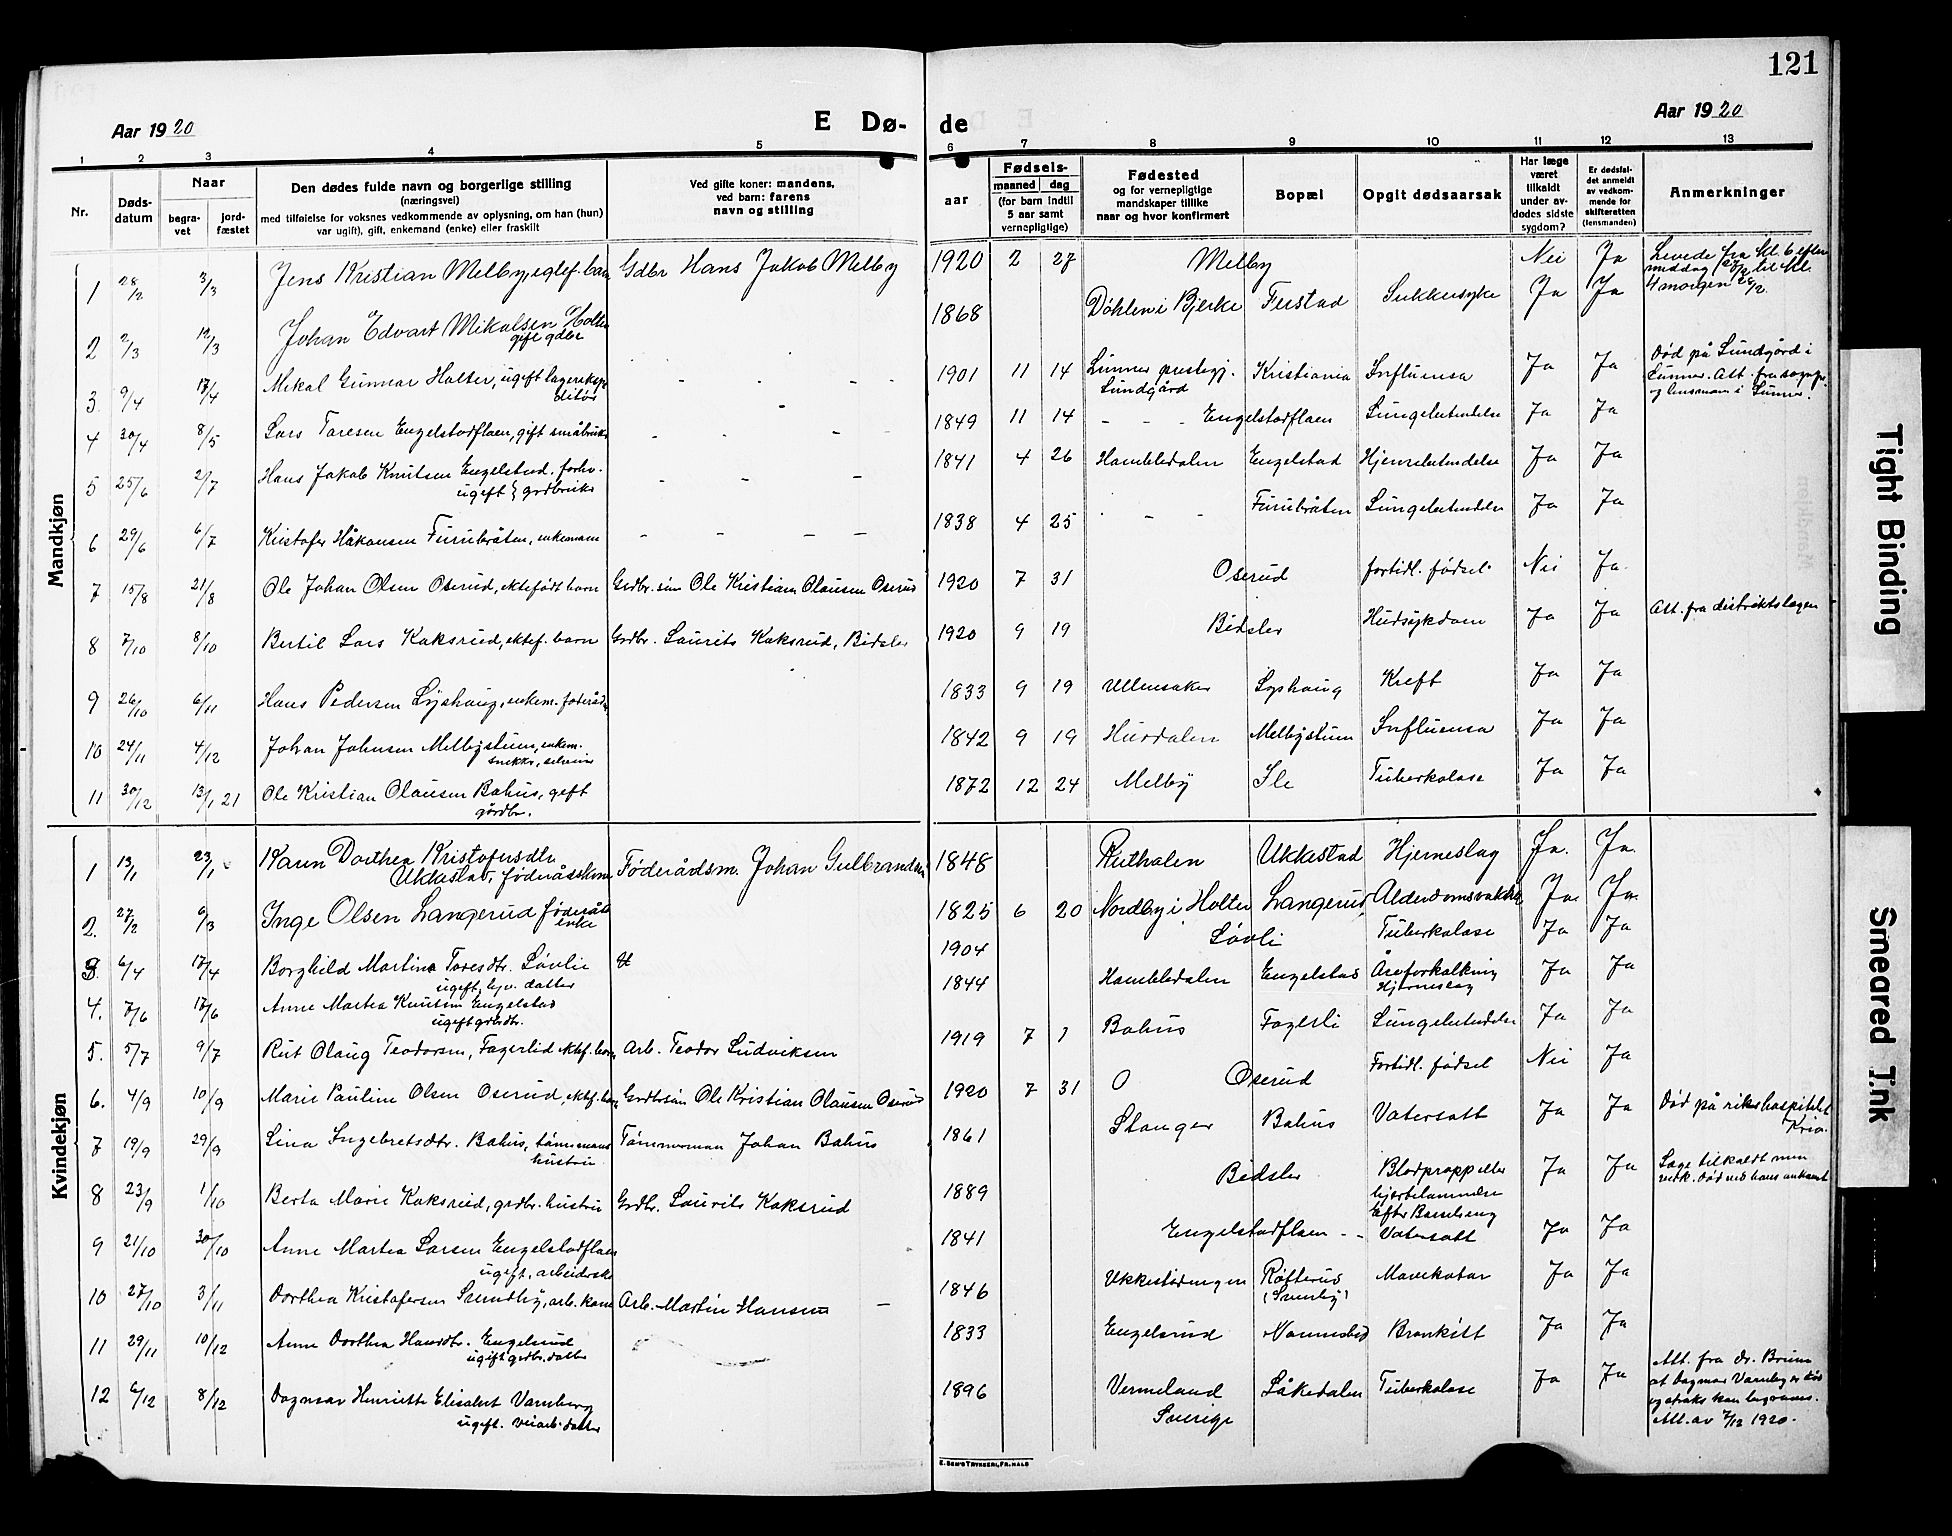 121
Aar 1920
E Dø- de
Aar 1920
1 2 3 4 5 6 7 8 9 10 11 12 13
Nr.
Døds-
datum
Naar
begra-
vet
jord-
fæstet
Den dødes fulde navn og borgerlige stilling
(næringsvei)
med tilføielse for voksnes vedkommende av oplysning, om han (hun)
var ugift), gift, enkemand (enke) eller fraskilt
Ved gifte koner: mandens,
ved barn: farens
navn og stilling
Fødsels-
aar
maaned dag
(for barn indtil
5 aar samt
vernepligtige)
Fødested
og for vernepligtige
mandskaper tillike
naar og hvor konfirmert
Bopæl
Opgit dødsaarsak
Har læge
været
tilkaldt
under av-
dødes sidste
sygdom?
Er dødsfal-
det anmeldt
av vedkom-
mende for
skifteretten
(lensmanden)
Anmerkninger
Mandkjøn
1 28/2 3/3 Jens Kristian Melby, egtef. barn Gdbr Hans Jakob Melby 1920 2 27 Melby Nei Ja Levede fra kl. 6 efter
middag 27/2 til kl.
4 morgen 28/2
2 2/3 12/3 Johan Edvart Mikalsen Holter
gift gdbr 1868 Döhlen i Bjerke Feistad Sukkersyke Ja Ja
3. 9/4 17/4 Mikal Gunnar Holter, ugift lagerekspe
ditør - - - - 1901 11 14 Lunner prestegj.
Lundgård Kristiania Influensa Ja Ja Død på Lundgård i
Lunner. Att. fra
og lensmann i Lunner.
4 30/4 8/5 Lars Taresen Engelstadflaen, gift småbruker - - - 1849 11 14 - - - Engelstadflaen Lungebetendelse Ja Ja
5 25/6 2/7 Hans Jakob Knutsen Engelstad. forhv.
ugift grdbruker - - - 1841 4 26 Hambledalen Engelstad Hjernebetendelse Ja Ja
6 29/6 6/7 Kristofer Håkonsen Furubråten, enkemann - - - - 1838 4 25 - - - Furubråten Lungebetendelse Ja Ja
7 15/8 21/8 Ole Johan Olsen Oserud, ektefødt barn Grdbr. søn Ole Kristian Olausen Oserud 1920 7 31 Oserud fortidl. fødsel. Nei Ja.
8 7/10 8/10 Bertil Lars Kaksrud, ektef. barn Grdbr. Laurits Kaksrud, Bidsler 1920 9 19 Bidsler Hudsykdom Ja Ja Att. fra distriktslægen
9 26/10 6/11 Hans Pedersen Lyshaug, enkem. føderådsm. 1833 9 19 Ullensaker Lyshaug Kreft Ja Ja
10 24/11 4/12 Johan Johnsen Melbystuen, enkem.
snekker, 1842 9 19 Hurdalen Melbystuen Influensa Ja Ja
11 30/12 13/1 21 Ole Kristian Olausen Bahus, gift
gårdbr. 1872 12 24 Melby Ile Tuberkulose Ja Ja
Kvindekjøn
1 13/1 23/1 Karen Dorthea Kristofersdtr
Ukkestad, føderådskone Føderådsm. Johan Gulbrandsen 1848 Ruthalen Ukkestad Hjerneslag Ja. Ja.
2. 27/2 9/3 Inge Olsen Langerud føderåds
enke 1825 6 20 Nordby i Holter Langerud, Alderdomssvakhet Ja Ja
3. 6/4 17/4 Borghild Martina Taresdtr. Løvlie
ugift, hjv. datter 1904 Løvli Tuberkulose Ja Ja
4. 7/6 17/6 Anne Martea Knutsen Engelstad
ugift grdbrdtr. 1844 Hambledalen Engelstad Åreforkalkning
Hjerneslag Ja Ja
5. 5/7 9/7 Rut Olaug Teodorsen, Fagerlid ektef. barn Arb. Teodor Ludviksen 1919 7 1 Bahus Fagerli Lungebetendelse Ja Ja
6. 4/9 10/9 Marie Pauline Olsen Oserud, ektef. barn Grdbrsøn Ole Kristian Olausen Oserud 1920 7 31 O Oserud Fortidl. fødsel Nei Ja
7 19/9 29/9 Lina Ingebretsdtr. Bahus, tømmermans
hustru Tømmerman Johan Bahus 1861 Stanger Bahus Vatersott Ja Ja Død på rikshospitalet
Kria.
8 23/9 1/10 Berta Marie Kaksrud, grdbr. hustru Grdbr. Laurits Kaksrud 1889 Bidsler Blodpropp eller
hjertelammelse
Efter Barselseng Ja Ja Læge tilkaldt men
vedk. død ved hans ankomst
9 21/10 30/10 Anne Martea Larsen Engelstadflaen
ugift, arbeiderske 1841 Engelstadflaen - - Vatersott Ja Ja
10 27/10 3/11 Dorthea Kristofersen Sundby, arb. kone Arb. Martin Hansen - 1846 Ukkestadengen Røtterud
(Sundby) Mavekatar Ja Ja
11 29/11 10/12 Anne Dorthea Hansdtr. Engelsrud
ugift grdbr. datter 1833 Engelsrud Nannestad Bronkitt Ja Ja
12 6/12 8/12 Dagmar Henriette Elisabet Varnberg
ugift. veiarb. datter 1896 Vermeland
Sverige Låkedalen Tuberkulose Ja Ja Att. fra dr. Bruun
at Dagmar Varnberg er død
og straks kan begraves.
Att. av 7/12 1920.
E. SEM'S TRYKKERI, FR.HALD
Tight Binding
Smeared Ink